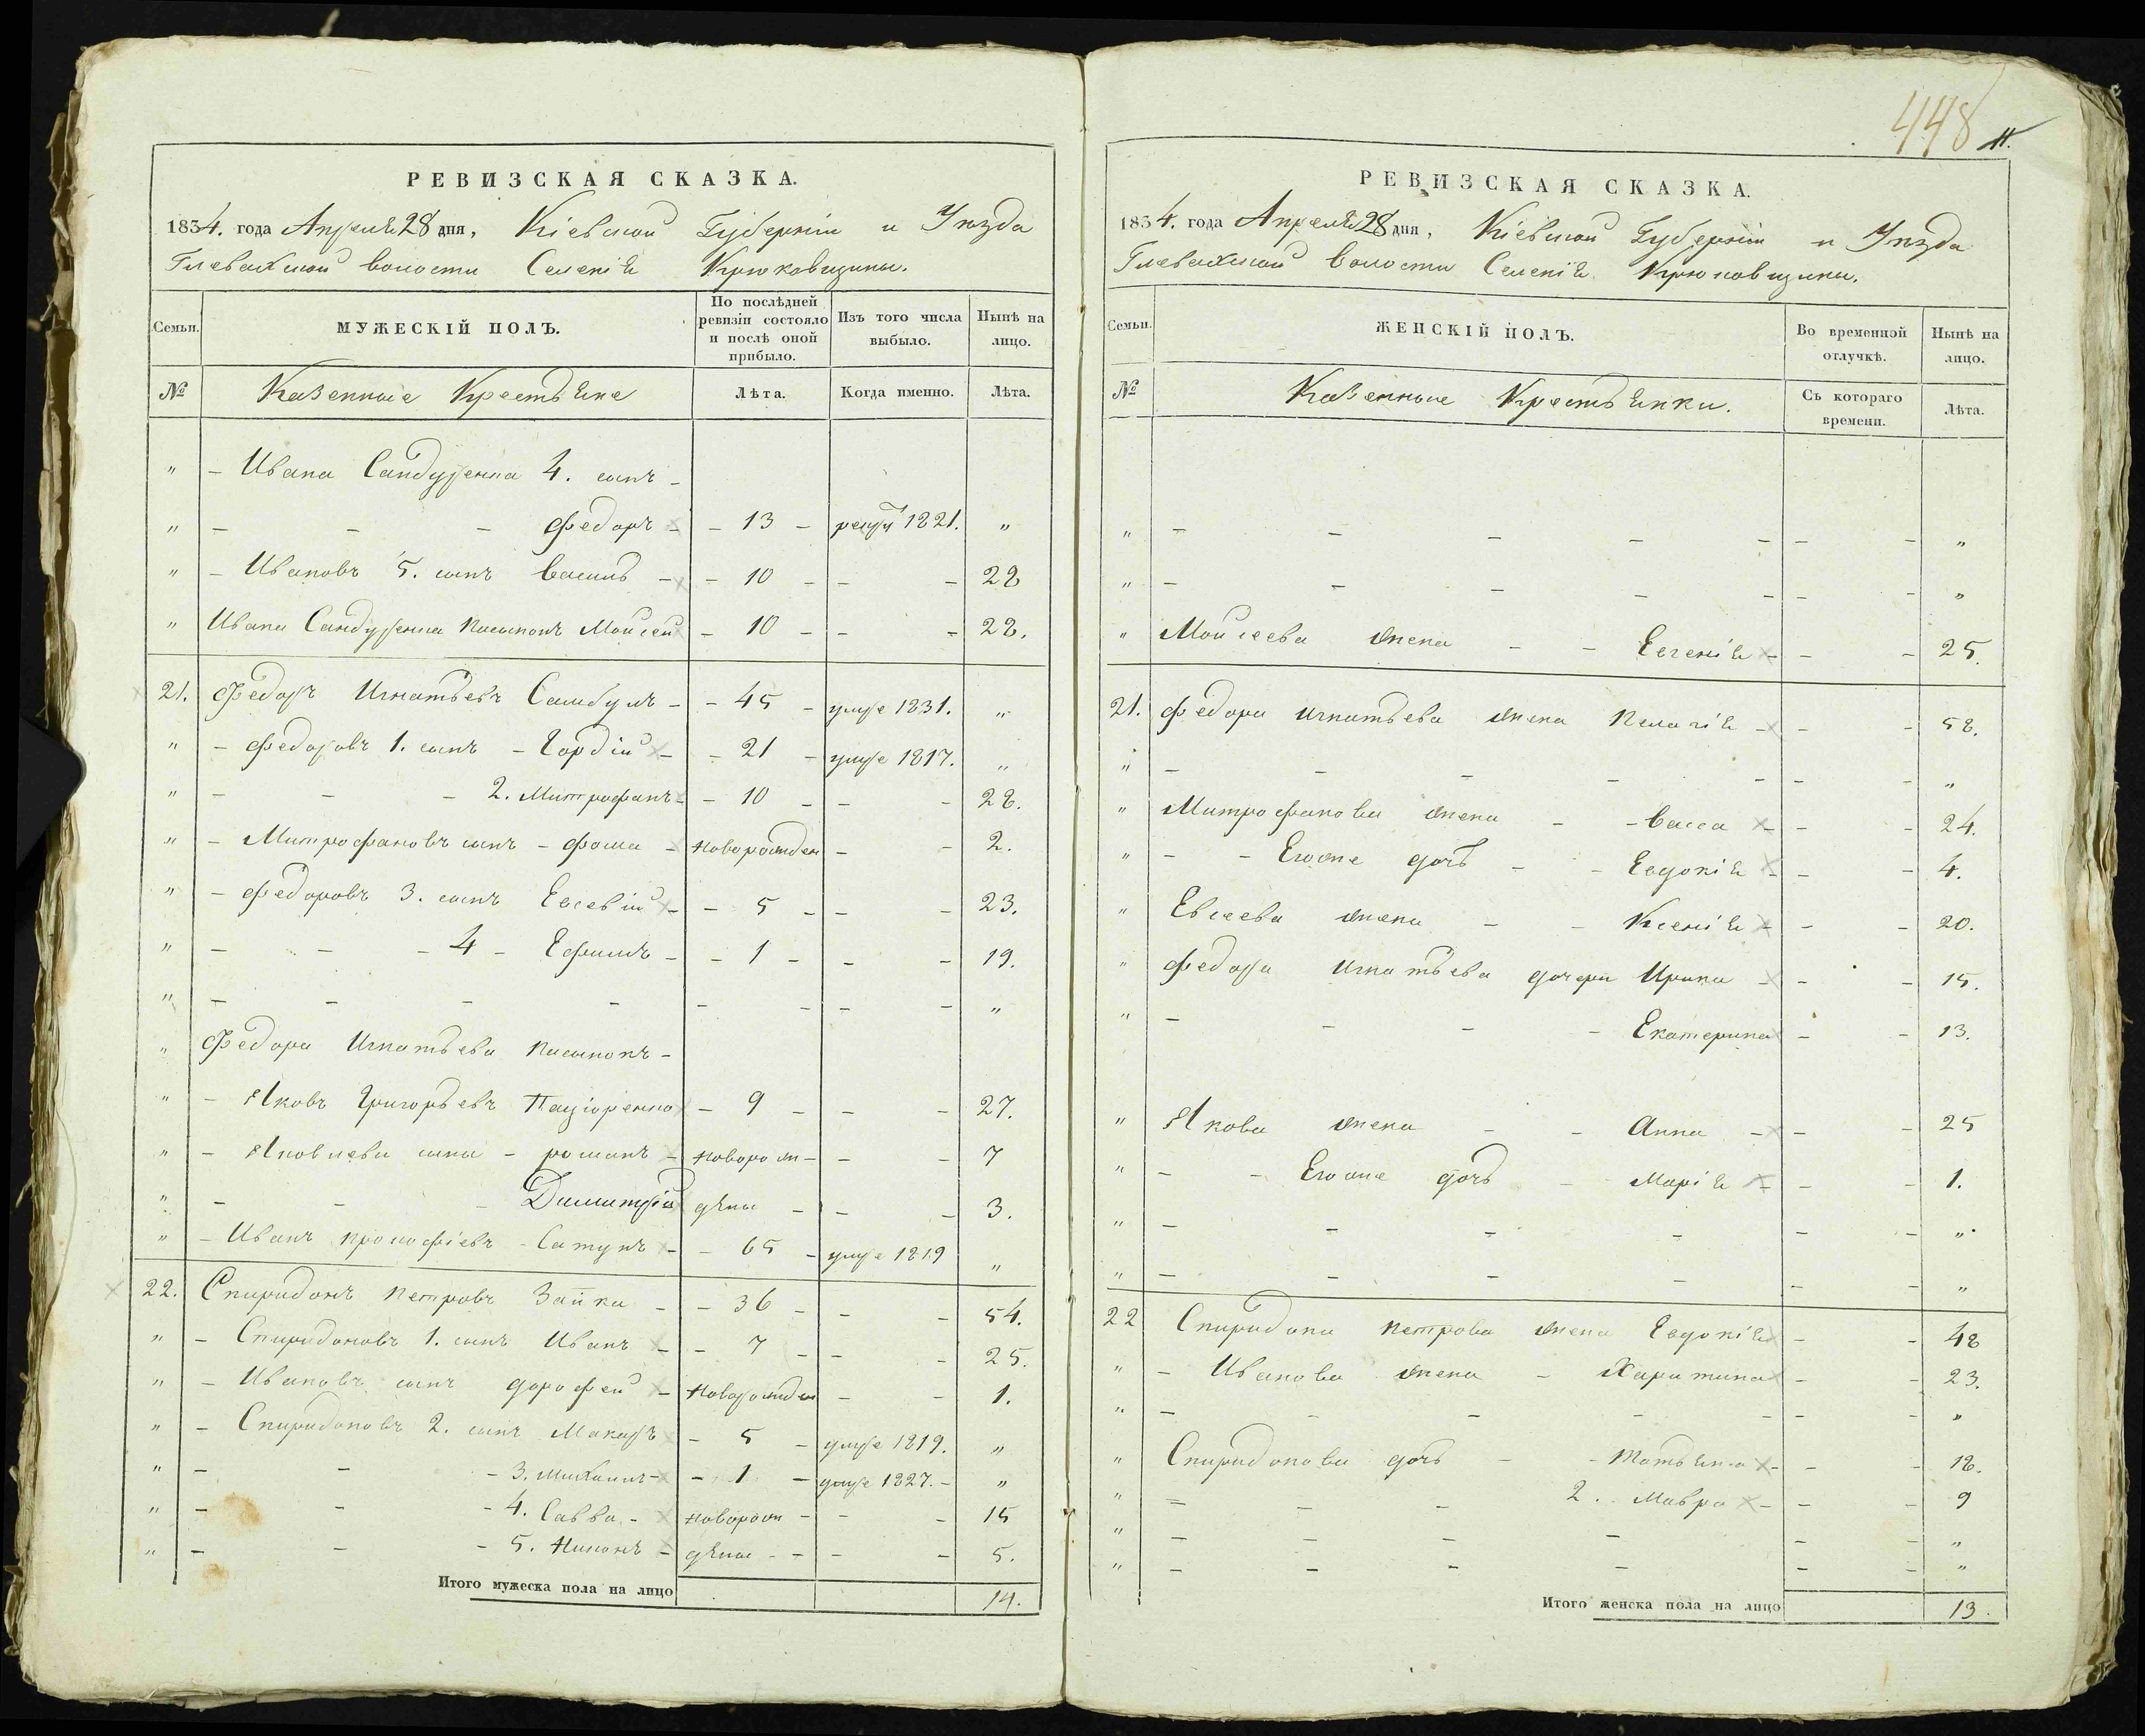 448
11.
РЕВИЗСКАЯ СКАЗКА.
1834. года Апреля 28 дня, Кіевской Губерніи и Уѣзда
Глевахской волости Селенія Крюковщины.
Семьи. МУЖЕСКІЙ ПОЛЪ. По послѣдней ревизіи состояло и послѣ оной прибыло. Изъ того числа выбыло. Нынѣ на лицо.
№ Казенные Крестьяне Лѣта. Когда именно. Лѣта.
" - Ивана 4. сынъ -
" - - - Федоръ - - 13 - 1821. "
" - Ивановъ 5. сынъ Василь - - 10 - - - 28
" Ивана пасынокъ Мойсей - 10 - - - 28.
21. Федоръ Игнатьевъ - - 45 - умре 1831. "
" - Федоровъ 1. сынъ - Гордій - - 21 - умре 1817. "
" - - - 2. Митрофанъ - - 10 - - - 28.
" - Митрофановъ сынъ - Фома - новорожден - - 2.
" - Федоровъ 3. сынъ Евсевій - - 5 - - - 23.
" - - - 4 - Ефимъ - - 1 - - - 19.
" - - - - - - - - "
" Федора Игнатьева пасынокъ -
" - Яковъ Григорьевъ - 9 - - - 27.
" - Яковлевы сыны - романъ - новорож - - - 7
" - - - Димитрій дены - - - 3.
" - Иванъ прокофіевъ - - - 65 - умре 1819 "
22. Спиридонъ петровъ Заика - - 36 - - - 54.
" - Спиридоновъ 1. сынъ Иванъ - - 7 - - - 25.
" - Ивановъ сынъ дорофей - новорожден - - 1.
" - Спиридоновъ 2. сынъ Макаръ - 5 - умре 1819. "
" - - - 3. Михаилъ - - 1 - умре 1827. - "
" - - - 4. Савва - новорож - - - 15
" - - - 5. Никонъ - дены - - - - 5.
Итого мужеска пола на лицо 14.
РЕВИЗСКАЯ СКАЗКА.
1834. года Апреля 28 дня, Кіевской Губерніи и Уѣзда
Глевахской волости Селенія Крюковщины.
Семьи. ЖЕНСКІЙ ПОЛЪ. Во временной отлучкѣ. Нынѣ на лицо.
№ Казенные Крестьянки. Съ котораго времени. Лѣта.
" - - - - - - - "
" - - - - - - - "
" Мойсеева жена - - Евгенія - - - 25.
21. Федора игнатьева жена Пелагія - - - 58.
" - - - - - - - "
" Митрофанова жена - - васса - - - 24.
" - - Егоже дочь - - Евдокія - - - 4.
" Евсеева жена - - Ксенія - - - 20.
" Федора Игнатьева дочери Ирина - - - 15.
" - - - - Екатерина - - 13.
" Якова жена - - Анна - - - 25
" - - Егоже дочь - Марія - - - 1.
" - - - - - - "
" - - - - - - "
22 Спиридона петрова жена Евдокія - - 48
" - Иванова жена - Харитина - - 23.
" - - - - - - - "
" Спиридонова дочь - - татьяна - - - 18.
" - - - 2. Мавра - - - 9
" - - - - - - "
" - - - - - - "
Итого женска пола на лицо 13.